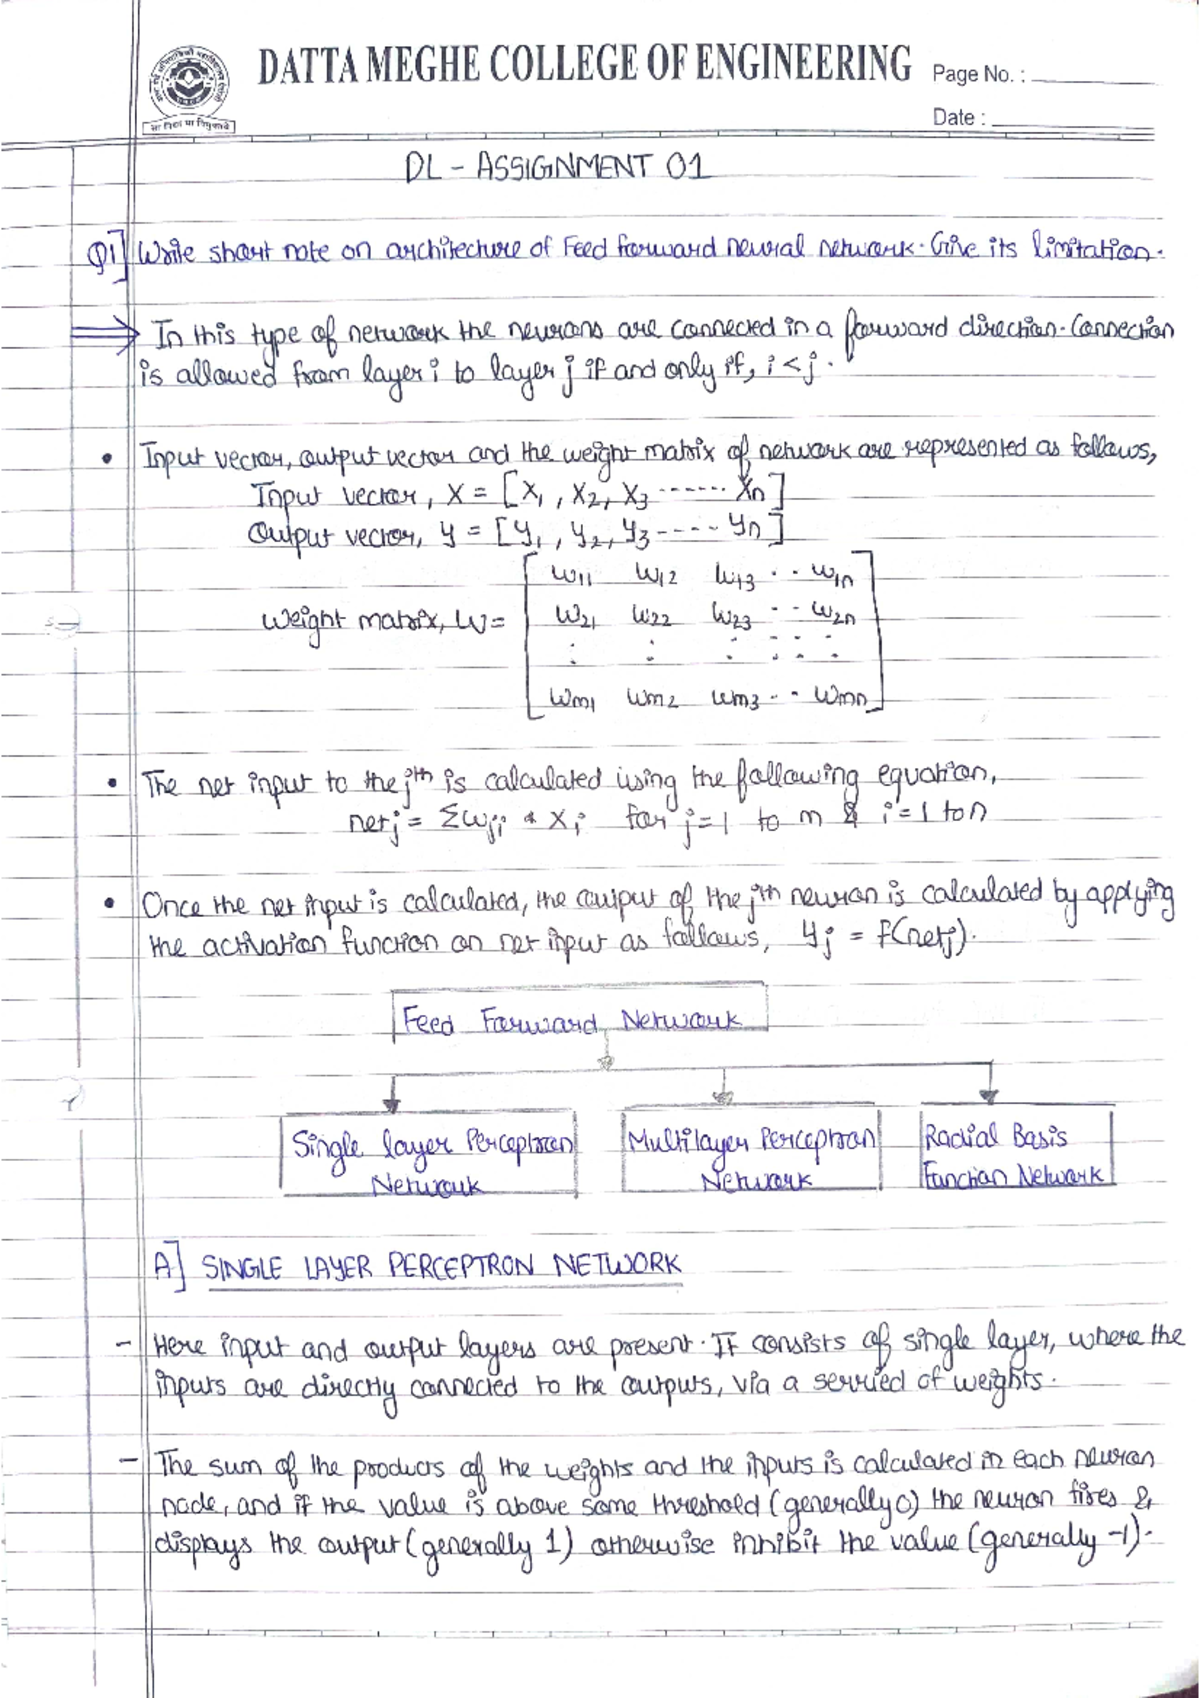 DATTA MEGHE COLLEGE OF ENGINEERING Page No. :
Date :
सा विद्या या विमुक्तये
DL - ASSIGNMENT 01
Q1] Write short note on architecture of Feed forward neural network. Give its limitation.
In this type of network the neurons are connected in a forward direction. Connection
is allowed from layer i to layer j if and only if, i < j.
• Input vector, output vector and the weight matrix of network are represented as follows,
Input vector, X = [X1, X2, X3 ------ Xn]
Output vector, Y = [Y1, Y2, Y3 ---- Yn]
W11 W12 W13 .. W1n
Weight matrix, W = W21 W22 W23 .. W2n
: : : : : :
Wm1 Wm2 Wm3 .. Wmn
• The net input to the jth is calculated using the following equation,
netj = ΣWji * Xi for j=1 to m & i=1 to n
• Once the net input is calculated, the output of the jth neuron is calculated by applying
the activation function on net input as follows, Yj = f(netj).
Feed Forward Network
Single layer Perceptron Multilayer Perceptron Radial Basis
Network Network Function Network
A] SINGLE LAYER PERCEPTRON NETWORK
- Here input and output layers are present. It consists of single layer, where the
inputs are directly connected to the outputs, via a serried of weights.
- The sum of the products of the weights and the inputs is calculated in each neuron
node, and if the value is above some threshold (generally 0) the neuron fires &
displays the output (generally 1) otherwise inhibit the value (generally -1).